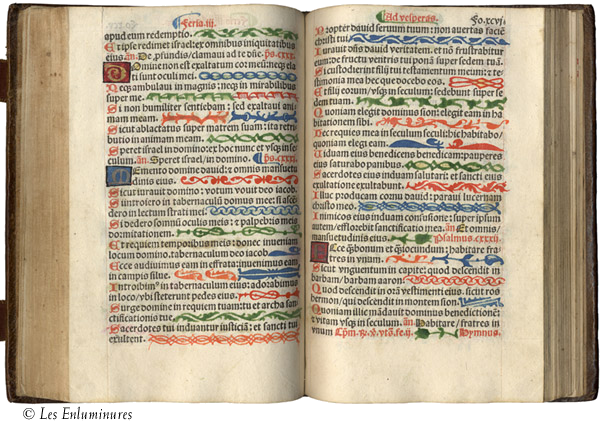 Feria.iij.
apud eum redemptio.
Et ipse redimet israel: ex omnibus iniquitatibus
eius. añ. De pfundis/clamaui ad te dñe. ps.cxxx.
Domine non est exaltatum cor meum: neq; ela
ti sunt oculi mei.
Neq; ambulaui in magnis: neq; in mirabilibus
super me.
Si non humiliter sentiebam: sed exaltaui ani
mam meam.
Sicut ablactatus super matrem suam: ita retri
butio in animam meam.
Speret israel in domino: ex hoc nunc et vsq; in se
culum. añ. Speret israel/in domino. ps.cxxxi.
Memento domine dauid: et omnis mansuetu
dinis eius.
Sicut iurauit domino: votum vouit deo iacob.
Si introiero in tabernaculũ domus mee: si ascẽ
dero in lectum strati mei.
Si dedero somnũ oculis meis: et palpebris meis
dormitationem.
Et requiem temporibus meis: donec inueniam
locum domino, tabernaculum deo iacob.
Ecce audiuimus eam in effrata: inuenimus eam
in campis silue.
Introibim⁹ in tabernaculum eius: adorabimus
in loco/vbi steterunt pedes eius.
Surge domine in requiem tuam: tu et archa san
ctificationis tue.
Sacerdotes tui induantur iusticiã: et sancti tui
exultent.
Ad vesperas.
Fo.xcvj.
Propter dauid seruum tuum: non auertas faciẽ
christi tui.
Iurauit dñs dauid veritatem. et nõ frustrabitur
eum: de fructu ventris tui ponã super sedem tuã.
Si custodierint filij tui testamentum meum: et te
stimonia mea hec que docebo eos.
Et filij eorum/vsq; in seculum: sedebunt super se
dem tuam.
Quoniam elegit dominus sion: elegit eam in ha
bitationem sibi.
Hec requies mea in seculum seculi: hic habitabo/
quoniam elegi eam.
Viduam eius benedicens benedicam: pauperes
eius saturabo panibus.
Sacerdotes eius induam salutari: et sancti eius
exultatione exultabunt.
Illuc producam cornu dauid: paraui lucernam
christo meo.
Inimicos eius induam confusione: super ipsum
autem/efflorebit sanctificatio mea. añ. Et omnis/
mansuetudinis eius. Psalmus.cxxxij.
Ecce q̃bonum et q̃iocundum: habitare fra
tres in vnum.
Sicut vnguentum in capite: quod descendit in
barbam/barbam aaron.
Quod descendit in orã vestimenti eius. sicut ros
hermon/qui descendit in montem sion.
Quoniam illic mãdauit dominus benedictionẽ:
et vitam vsq; in seculum. añ. Habitare/fratres in
vnum. Hymnus.
© Les Enluminures